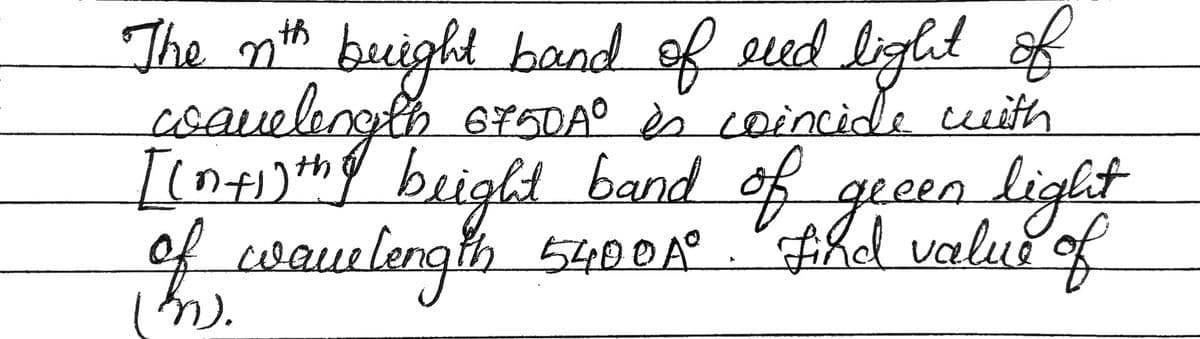 The nth bright band of red light of
wavelength 6750A° is coincide with
[(n+1)th] bright band of green light
of wavelength 5400A°. find value of
(n).